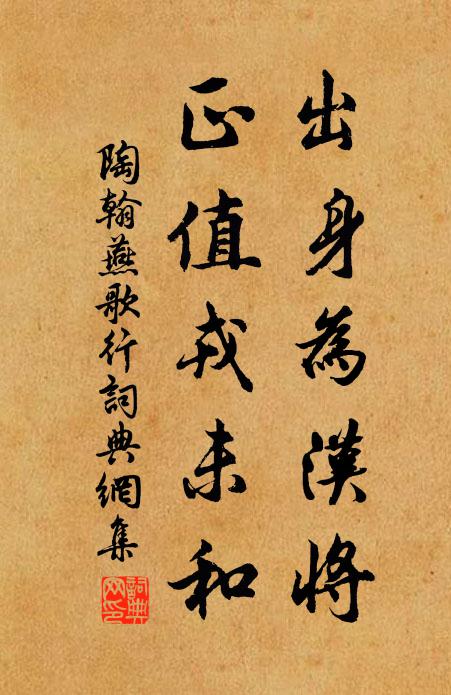 出身為漢將
正值戎未和
陶翰燕歌行詞典網集
詞典網印